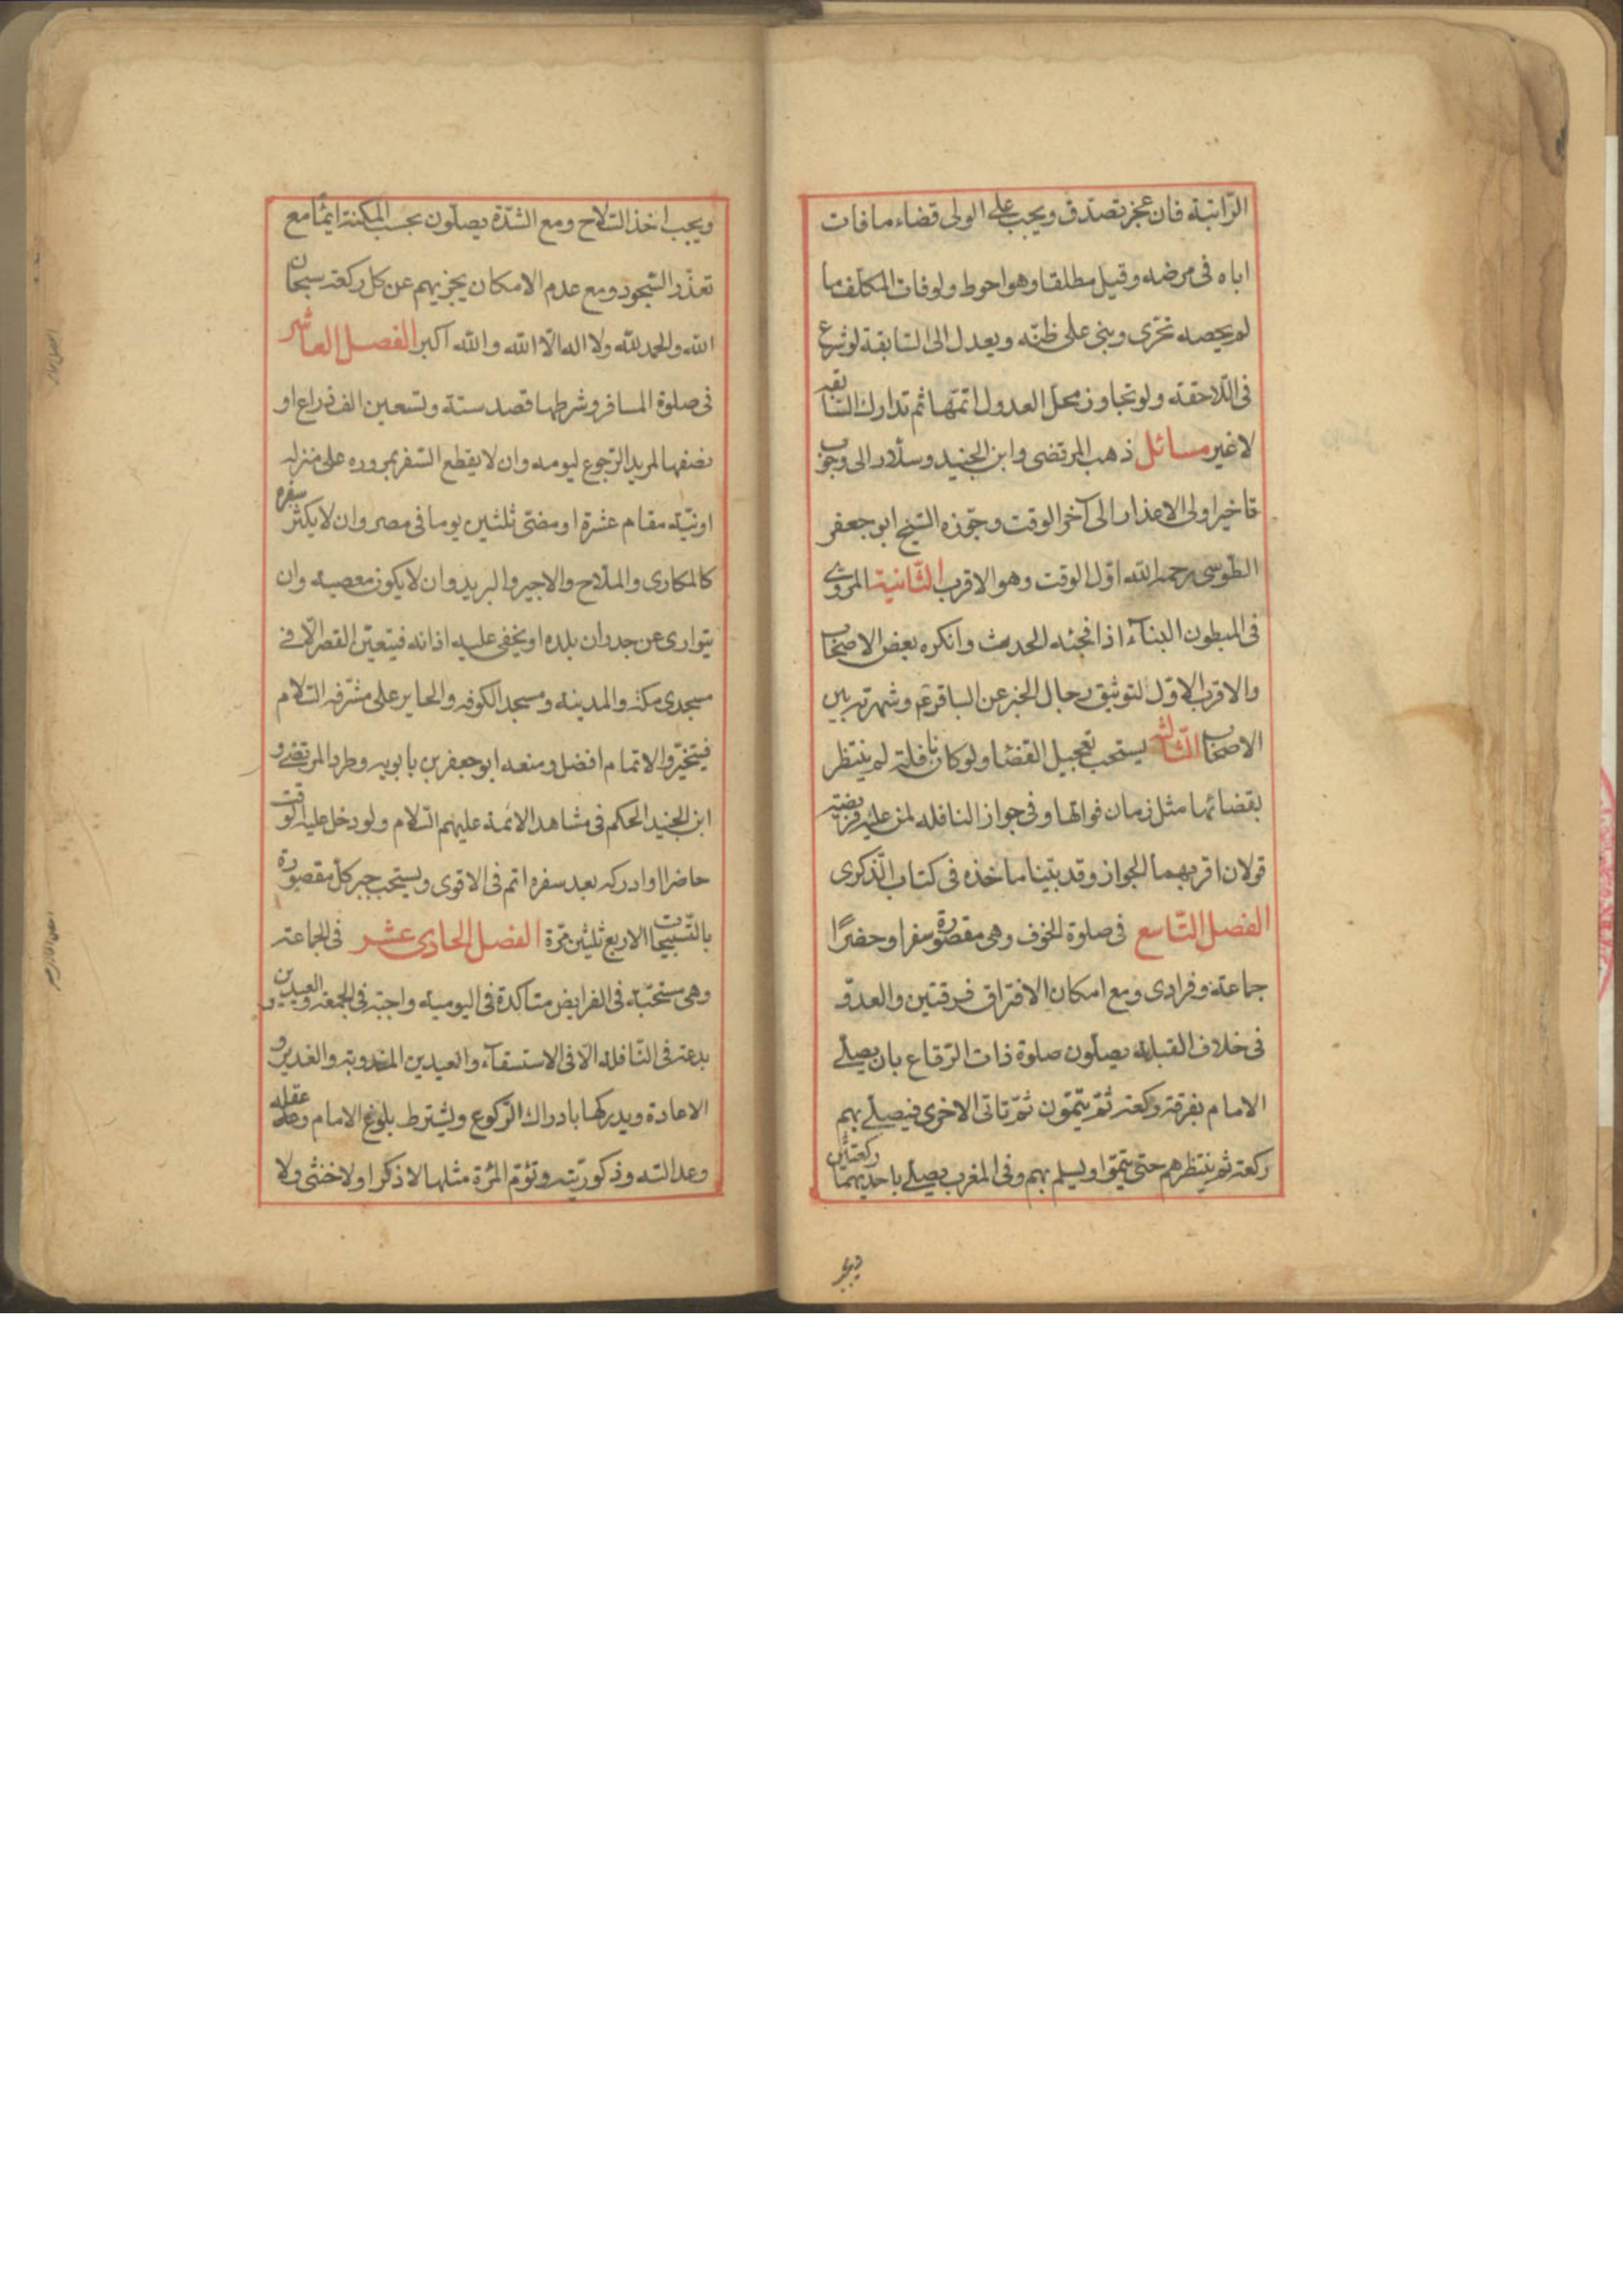 الرّاتبة فان عجز تصدّق ويجب على الولى قضاء ما فات
اباه فى مرضه وقيل مطلقا وهو احوط ولو فات المكلف ما
لم يحصه تحرّى ويبنى على ظنّه ويعدل الى السّابقة لو شرع
فى اللاحقة ولو تجاوز محلّ العدول اتمّها ثم تدارك السّابقة
لا غير مسائل ذهب المرتضى وابن الجنيد وسلّار الى وجوب
تاخير اولى الاعذار الى آخر الوقت وجوّزه الشيخ ابو جعفر
الطوسى رحمه الله اوّل الوقت وهو الاقرب الثّانية المروى
فى المبطون البناء اذا فجئه الحدث وانكره بعض الاصحاب
والاقرب الاوّل لتوثيق رجال الخبر عن الباقر ع وشهرته بين
الاصحاب الثّالثه يستحب تعجيل القضا ولو كان نافلة لم ينتظر
بقضائها مثل زمان فواتها وفى جواز النافله لمن عليه فريضة
قولان اقربهما الجواز وقد بيّنا ماخذه فى كتاب الذّكرى
الفصل التّاسع فى صلوة الخوف وهى مقصورة سفرا وحضرًا
جماعة وفرادى ومع امكان الافتراق فرقتين والعدوّ
فى خلاف القبلة يصلّون صلوة ذات الرّقاع بان يصلّى
الامام بفرقة ركعة ثمّ يتمّون ثمّ تاتى الاخرى فيصلّى بهم
ركعة ثم ينتظرهم حتى يتمّوا ويسلم بهم وفى المغرب يصلّى باحديهما ركعتين
ويجب
ويجب اخذ السّلاح ومع الشدّة يصلّون بحسب المكنة ايماً مع
تعذّر السّجود ومع عدم الامكان يجزيهم عن كل ركعة سبحان
الله والحمد لله ولا اله الّا الله والله اكبر الفصل العاشر
فى صلوة المسافر وشرطها قصد ستة وتسعين الف ذراع او
نصفها لمريد الرّجوع ليومه وان لا يقطع السّفر بمروره على منزله
او نيّة مقام عشرة او مضىّ ثلثين يوما فى مصر وان لا يكثر سفره
كالمكارى والملّاح والاجير والبريد وان لا يكون معصية وان
يتوارى عن جدران بلده او يخفى عليه اذانه فيتعيّن القصر الّا فى
مسجدى مكة والمدينة ومسجد الكوفه والحاير على مشرّفه السّلام
فيتخيّر والاتمام افضل ومنعه ابو جعفر بن بابويه وطرد المرتضى و
ابن الجنيد الحكم فى مشاهد الائمة عليهم السّلام ولو دخل عليه الوقت
حاضرا او ادركه بعد سفره اتم فى الاقوى ويستحب جبر كلّ مقصورة
بالتّسبيحات الاربع ثلثين مرّة الفصل الحادى عشر فى الجماعة
وهى مستحبّة فى الفرايض متاكدة فى اليومية واجبة فى الجمعة والعيدين
بدعة فى النّافلة الّا فى الاستسقاء والعيدين المندوبة والغدير و
الاعادة ويدركها بادراك الرّكوع ويشترط بلوغ الامام وعقله
وعدالته وذكوريّته وتؤمّ المرأة مثلها لا ذكرا ولا خنثى ولا